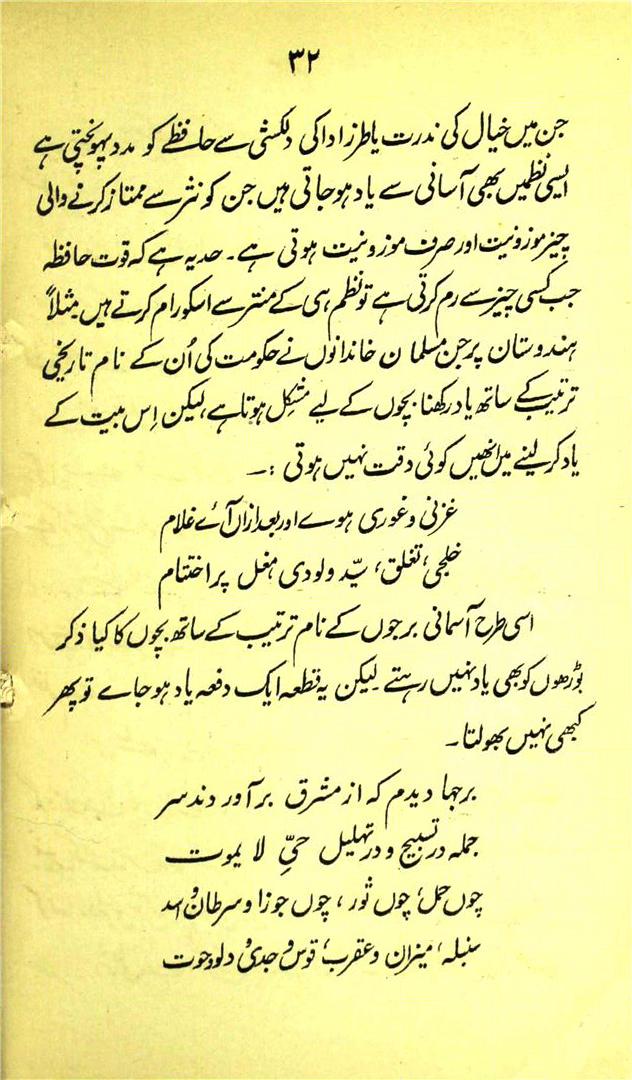 ۳۲
جن میں خیال کی ندرت یا طرز ادا کی دلکشی سے حافظے کو مدد پہونچتی ہے
ایسی نظمیں بھی آسانی سے یاد ہو جاتی ہیں جن کو نثر سے ممتاز کرنے والی
چیز موزونیت اور صرف موزونیت ہوتی ہے۔ حد یہ ہے کہ قوت حافظہ
جب کسی چیز سے رم کرتی ہے تو نظم ہی کے منتر سے اسکو رام کرتے ہیں مثلاً
ہندوستان پر جن مسلمان خاندانوں نے حکومت کی اُن کے نام تاریخی
ترتیب کے ساتھ یاد رکھنا بچوں کے لیے مشکل ہوتا ہے، لیکن اِس بیت کے
یاد کر لینے میں انھیں کوئی دقت نہیں ہوتی :۔
غزنی و غوری ہوے اور بعد ازاں آئے غلام
خلجی، تغلق، سیّد و لودی مغل پر اختتام
اسی طرح آسمانی برجوں کے نام ترتیب کے ساتھ بچوں کا کیا ذکر
بوڑھوں کو بھی یاد نہیں رہتے۔ لیکن یہ قطعہ ایک دفعہ یاد ہو جاے تو پھر
کبھی نہیں بھولتا۔
برجہا دیدم کہ از مشرق بر آوردند سر
جملہ در تسبیح و در تہلیل حیِّ لا یموت
چوں حمل، چوں ثور، چوں جوزا و سرطان و اسد
سنبلہ، میزان و عقرب، قوس و جدی و دلو و حوت